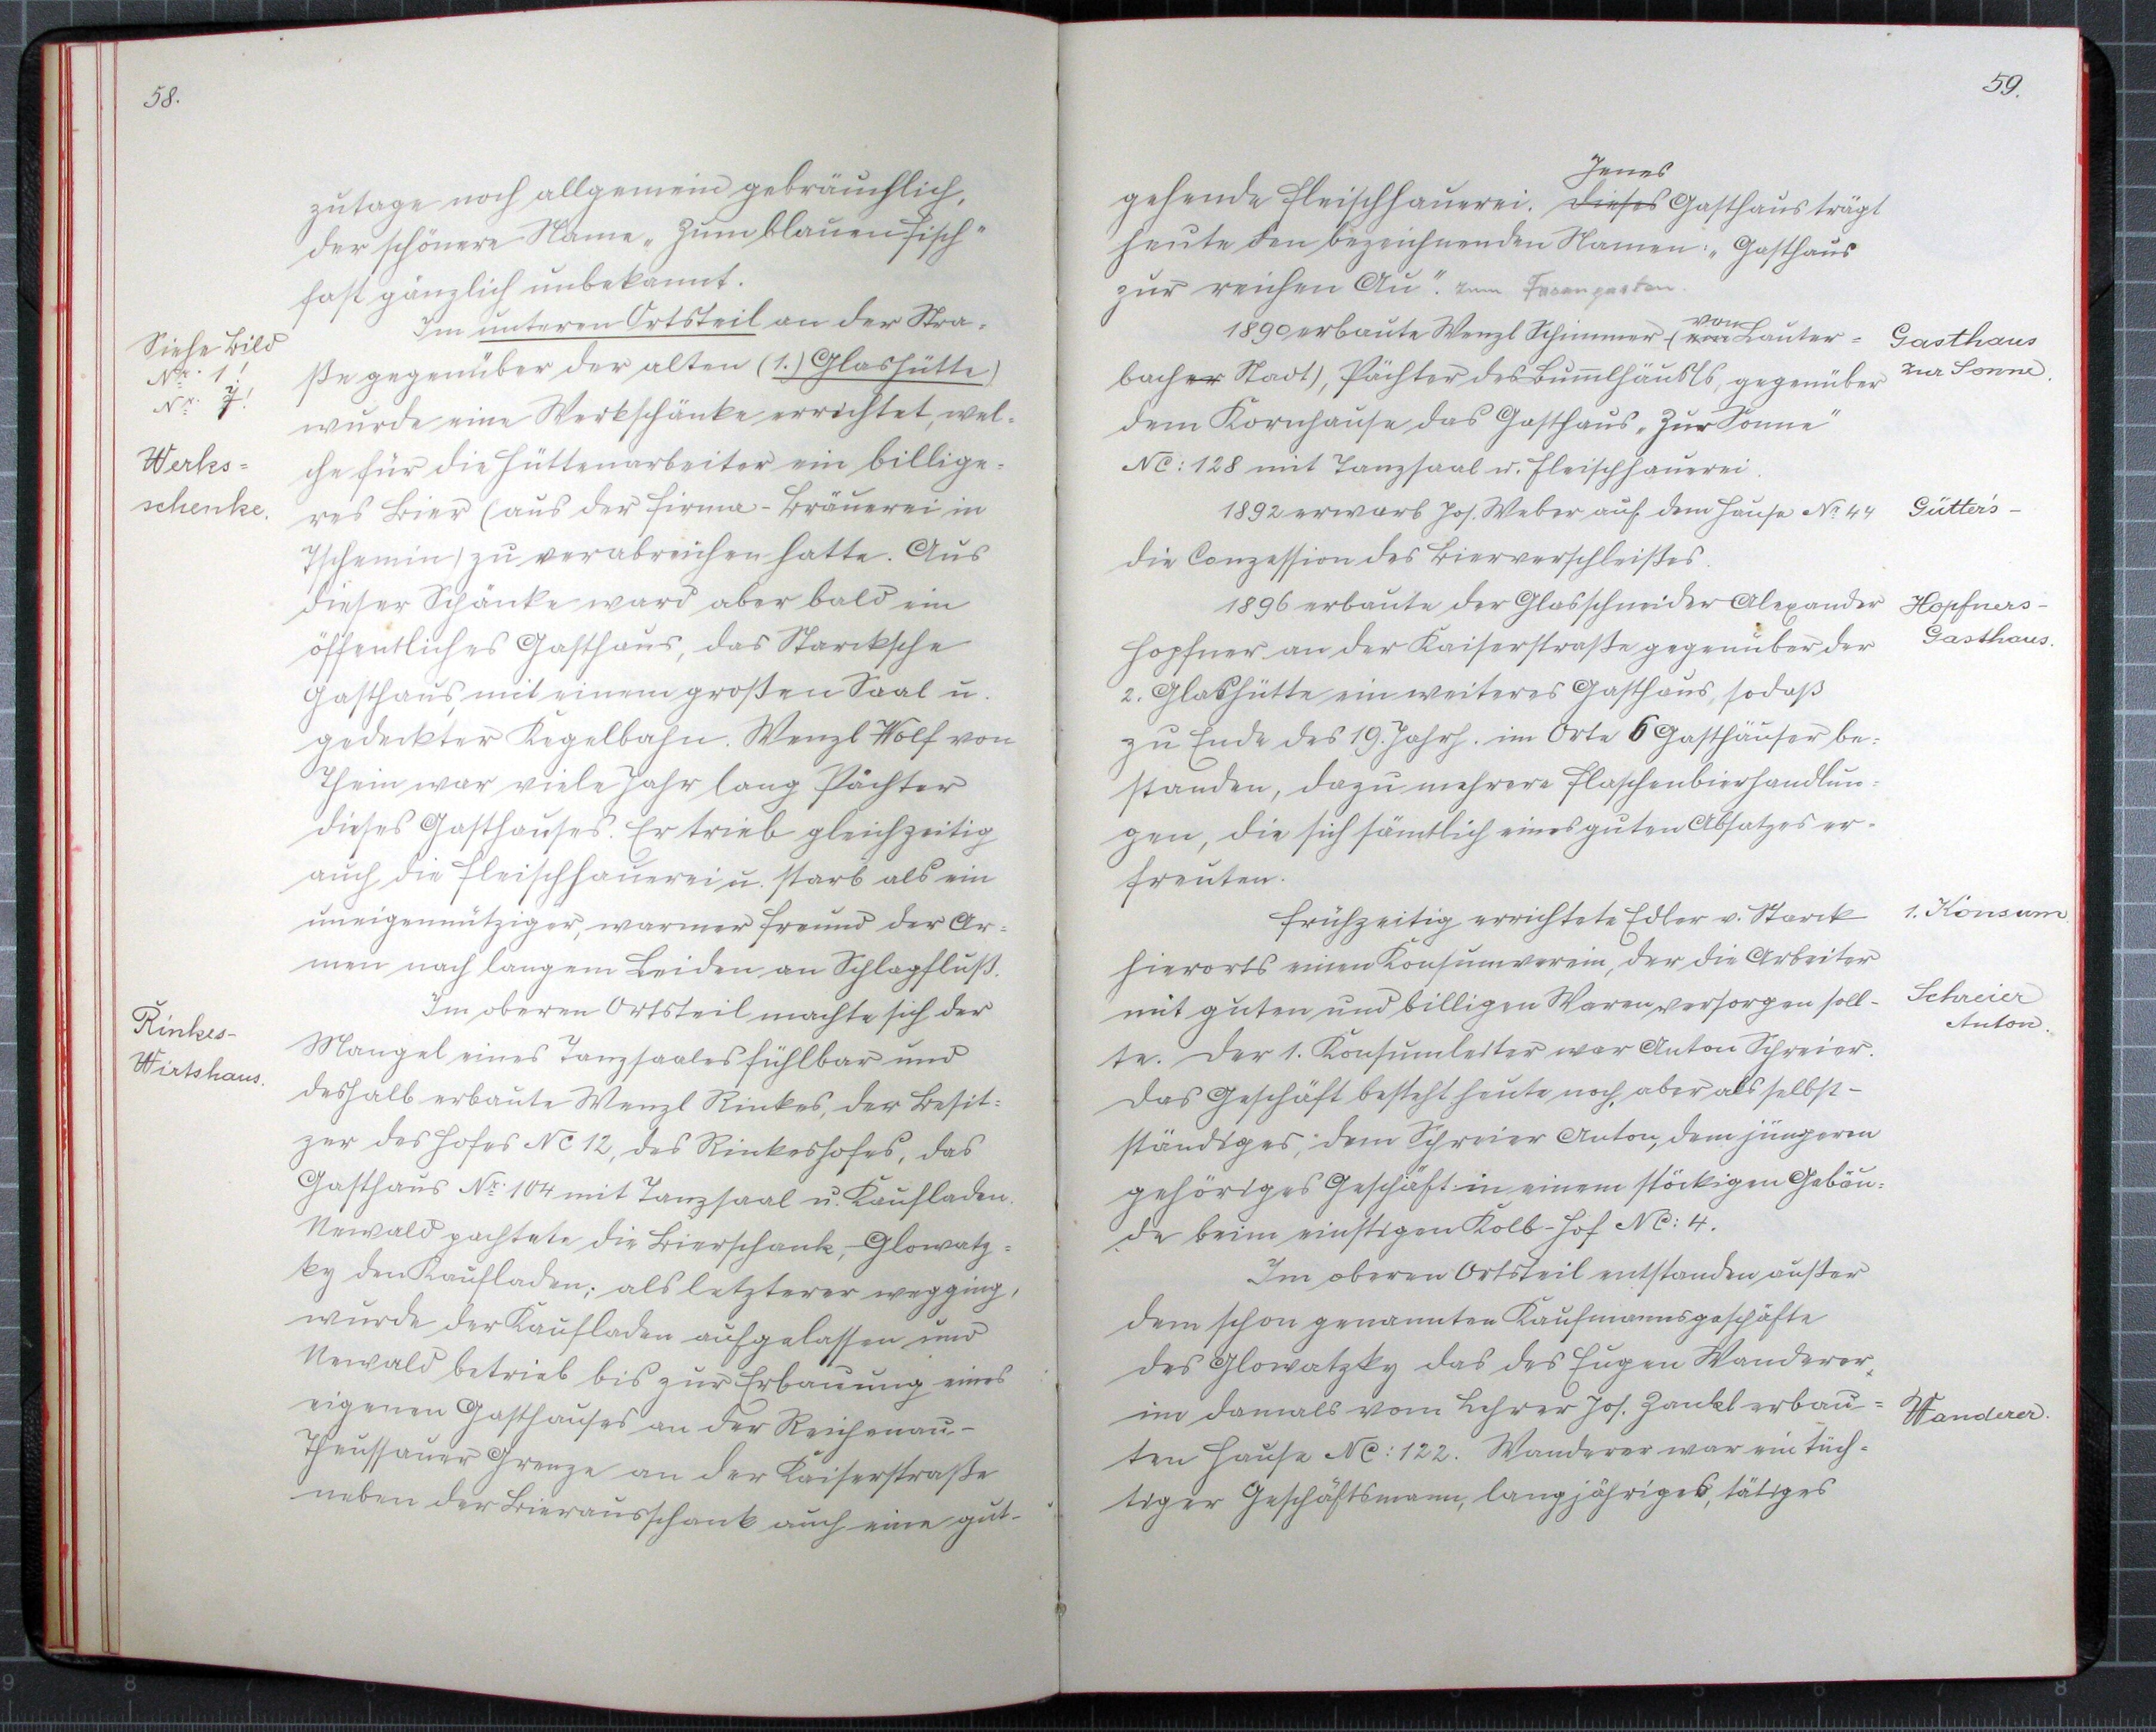 58.
zutage noch allgemein gebräuchlich,
der schönere Name „Zum blauen Fisch"
fast gänzlich unbekannt.
Im unteren Ortsteil an der Stra-
Siehe Bild
Nr. 1!
Nr.
ße gegenüber der alten (1.) Glashütte)
wurde eine Werkschänke errichtet, wel-
Werks-
schenke.
che für die Hüttenarbeiter ein billige-
res Bier (aus der Firma-Bräuerei in
Tschemin) zu verabreichen hatte. Aus
dieser Schänke ward aber bald ein
öffentliches Gasthaus, das Starcksche
Gasthaus, mit einem großen Saal u.
gedeckter Kegelbahn. Wenzl Wolf von
Thein war viele Jahr lang Pächter
dieses Gasthauses. Er trieb gleichzeitig
auch die Fleischhauerei u. starb als ein
uneigennütziger, warmer Freund der Ar-
men nach langem Leiden an Schlagfluß.
Im oberen Ortsteil machte sich der
Rinkes-
Wirtshaus.
Mangel eines Tanzsaales fühlbar und
deshalb erbaute Wenzl Rinkes, der Besit-
zer des Hofes NC 12, des Rinkeshofes, das
Gasthaus Nr. 104 mit Tanzsaal u. Kaufladen.
Newald pachtete die Bierschank, Glowatz-
ky den Kaufladen; als letzterer wegging,
wurde der Kaufladen aufgelassen und
Newald betrieb bis zur Erbauung eines
eigenen Gasthauses an der Reichenau-
Theussauer Grenze an der Kaiserstraße
neben der Bierausschank auch eine gut-
59.
Jenes
gehende Fleischhauerei. Dieses Gasthaus trägt
heute den bezeichnenden Namen: „Gasthaus
zur reichen Au". zum Fasangarten.
1890 erbaute Wenzl Schimmer (von Lauter-
Gasthaus
zur Sonne.
bacher Stadt), Pächter des Bumlhäusls, gegenüber
dem Kornhause das Gasthaus „Zur Sonne"
NC: 128 mit Tanzsaal u. Fleischhauerei.
1892 erwarb Jos. Weber auf dem Hause Nr 44
Gütter's-
die Conzession des Bierverschleißes.
1896 erbaute der Glasschneider Alexander
Hopfners-
Gasthaus.
Hopfner an der Kaiserstraße gegenüber der
2. Glashütte ein weiteres Gasthaus, sodaß
zu Ende des 19. Jahrh. im Orte 6 Gasthäuser be-
standen, dazu mehrere Flaschenbierhandlun-
gen, die sich sämtlich eines guten Absatzes er-
freuten.
Frühzeitig errichtete Edler v. Starck
1. Konsum.
hierorts einen Konsumverein, der die Arbeiter
mit guten und billigen Waren versorgen soll-
Schreier
Anton.
te. Der 1. Konsumleiter war Anton Schreier.
Das Geschäft besteht heute noch, aber als selbst-
ständiges, dem Schreier Anton, dem jüngeren
gehöriges Geschäft in einem stöckigen Gebäu-
de beim einstigen Kolb-Hof NC: 4.
Im oberen Ortsteil entstanden außer
dem schon genannten Kaufmannsgeschäfte
des Glowatzky das des Eugen Wanderer,
im damals vom Lehrer Jos. Zankl erbau-
Wanderer.
ten Hause NC: 122. Wanderer war ein tüch-
tiger Geschäftsmann, langjähriges, tätiges